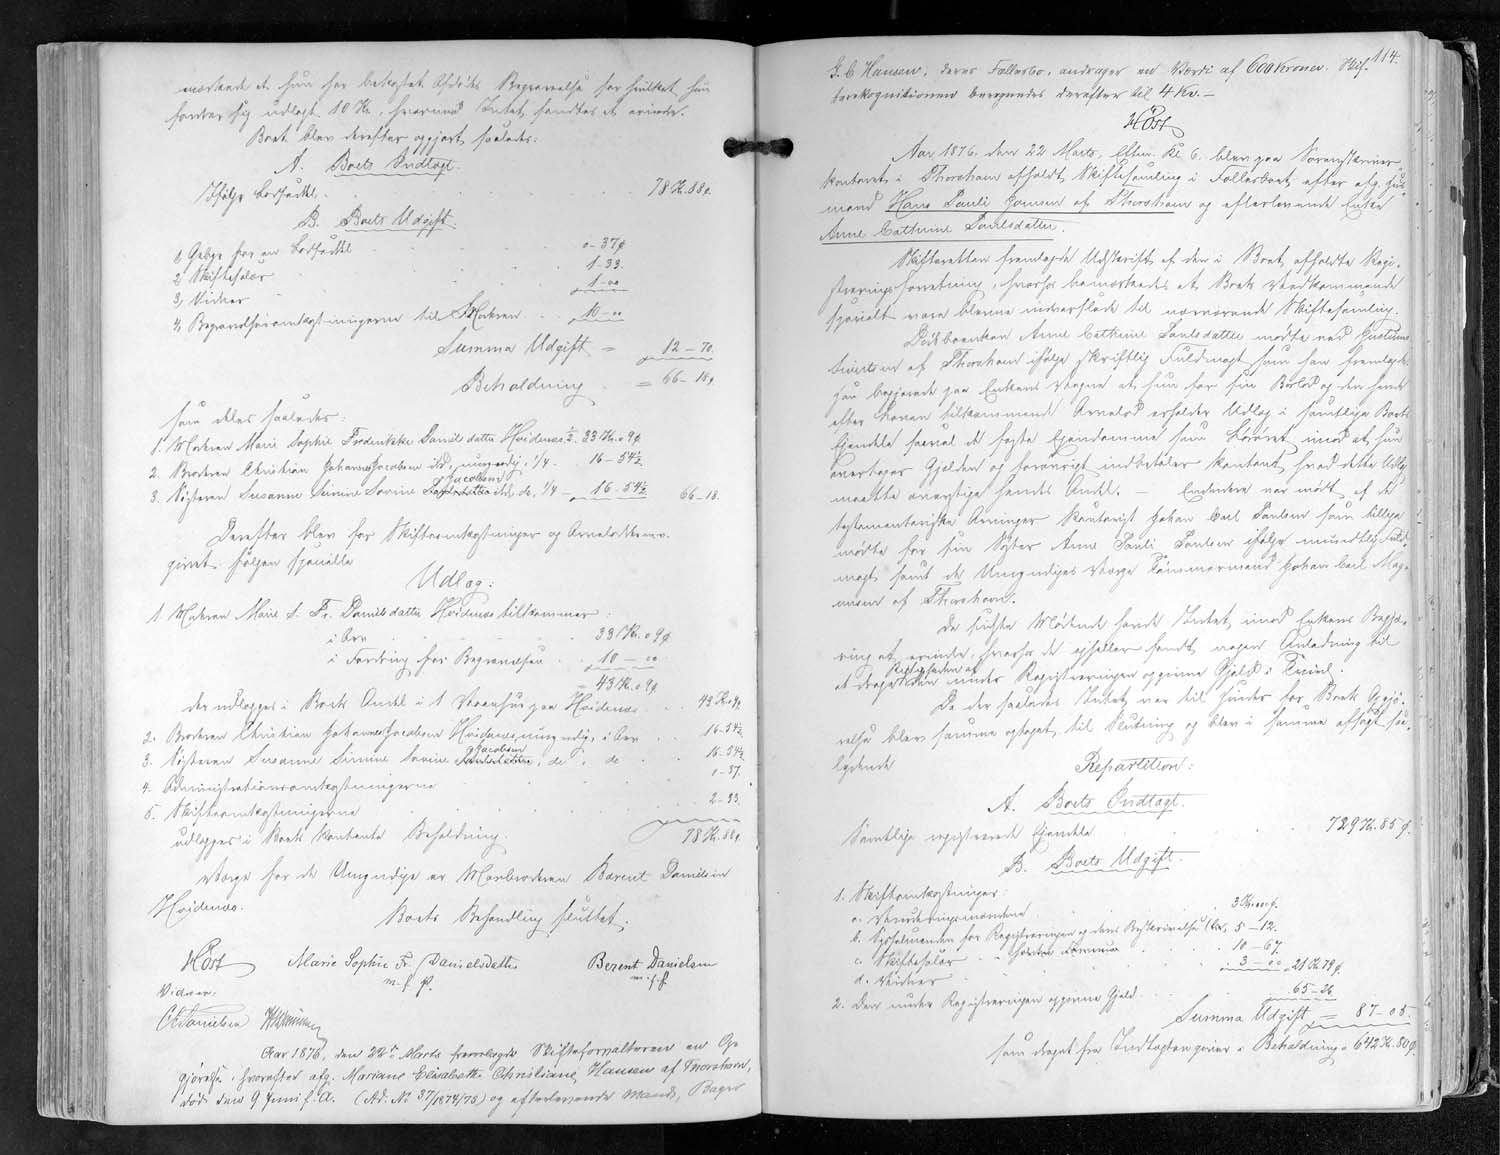 mærkede at hun har bekostet Afdødes Begravelse for hvilket hun
fordrer sig udlagt 10 Kr, hvorimod Intet fandtes at erindre.
Boet blev derefter opgjort saaledes:
A. Boets Indtægt.
Ifølge Lodseddel 78 Kr. 88 ø.
B. Boets Udgift.
1, Gebyr for en Lodseddel 0-37 ø
2, Skiftesalær 1-33.
3, Vidner 1-00
4, Begravelsesomkostningerne til Moderen 10-00
Summa Udgift = 12-70.
Behaldning = 66-18 ø.
som deles saaledes:
1. Moderen Marie Sophie Frederikke Danielsdatter Høidenæs 1/2. 33 Kr. 09 ø
2. Broderen Christian Johannes Jacobsen ibd., umyndig, 1/4. 16-54½
3. Søsteren Susanne Simine Sovine Jacobsen ibd, do, 1/4 - 16-54½ 66-18.
Derefter blev for Skifteomkostninger og Arvelodderne
givet følgende specielle
Udlæg:
1. Moderen Marie S. Fr. Danielsdatter Høidenæs tilkommer
i Arv 33 Kr. 09 ø
i Fordring for Begravelsen 10-00
= 43 Kr. 09 ø
der udlægges i Boets Andel i 1 Vaanehus paa Høidenæs 43 Kr. 09.
2. Broderen Christian Johannes Jacobsen Høidenæs, umyndig, i Arv 16-54½
3. Søsteren Susanne Simine Sovine Jacobsen, do, do 16-54½
4. Administrationsomkostningerne 0-37.
5. Skifteomkostningerne 2-33.
udlægges i Boets Contante Behaldning. 78 Kr. 88 ø.
Værge for de Umyndige er Morbroderen Berent Danielsen
Høidenæs.
Boets Behandling sluttet.
Høst Marie Sophie Fr. Danielsdatter Berent Danielsen
m. f. P. m. f. P.
Vidner:
Aar 1876, den 22de Marts fremlagde Skifteforvalteren en Op-
gjørelse, hvorefter afg. Mariane Elisabeth Christiane Hansen af Thorshavn,
død den 9 Juni f. A. (Ad. No 37/1874/75) og efterlevende Mands, Bager
114.
J. C. Hansen, deres Fællesbo, andrager en Værdi af 600 Kroner. Skif-
terekognitionen beregnedes derefter til 4 Kr. -
Høst
Aar 1876, den 22 Marts, Efterm. Kl 6. blev paa Sorenskriver
kontoret i Thorshavn afholdt Skiftesamling i Fællesboet efter afg. Huus-
mand Hans Pauli Joensen af Thorshavn og efterlevende Enke
Anne Cathrine Poulsdatter.
Skifteretten fremlagde Udskrift af den i Boet afholdte Regi-
streringsforretning, hvorhos bemærkedes at Boets Vedkommende
specielt vare blevne indvarslede til nærværende Skiftesamling.
Boets Enke Anne Cathrine Poulsdatter mødte ved
af Thorshavn ifølge skriftlig Fuldmagt som han fremlagde.
Han begjærede paa Enkens Vegne at hun for sin Boslod og den hende
efter Manden tilkommende Arvelod erholder Udlæg i samtlige Boets
Eiendele saavel de faste Eiendomme som Løsøret imod at hun
overtager Gjælden og forøvrigt indbetaler contant hvad dette Udlæg
maatte overstige hendes Andel. - Endvidere var mødt af de
testamentariske Arvinger Contorist Johan Carl Poulsen som tillige
mødte for sin Søster Anne Pauli Poulsen ifølge mundtlig Fuld-
magt samt de Umyndiges Værge Tømmermand Johan Carl Mag-
nussen af Thorshavn.
De sidste Mødende havde Intet imod Enkens Begjæ-
ring at erindre, hvorhos de ejheller fandt nogen Anledning til
at drage Rigtigheden af den under Registreringen opgivne Gjæld i Tvivl.
Da der saaledes Intet var til Hinder for Boets Opgjø-
relse blev samme optaget til Slutning og blev i samme afsagt saa-
lydende
Repartition:
A. Boets Indtægt.
Samtlige registrerede Eiendele 729 Kr. 85 ø.
B. Boets Udgift.
1. Skifteomkostninger:
a. Vurderingsmændene 3 Kr. 00 ø.
b. Sysselmanden for Registreringen og dens Beskrivelse 5-12.
c. Skiftesalær 10-67
d. Vidner 3-00 = 21 Kr. 79 ø.
2. Den under Registreringen opgivne Gjæld 65-26
Summa Udgift = 87-05.
som draget fra Indtægten giver i Behaldning = 642 Kr. 80 ø.